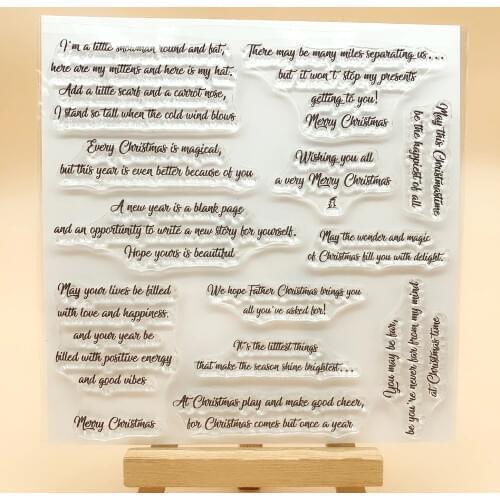 I'm a little snowman round and fat,
here are my mittens and here is my hat.
Add a little scarf and a carrot nose,
I stand so tall when the cold wind blows
There may be many miles separating us...
but it won't stop my presents
getting to you!
Merry Christmas
May this Christmastime
be the happiest of all.
Every Christmas is magical,
but this year is even better because of you
Wishing you all
a very Merry Christmas
A new year is a blank page
and an opportunity to write a new story for yourself.
Hope yours is beautiful
May the wonder and magic
of Christmas fill you with delight.
May your lives be filled
with love and happiness.
and your year be
filled with positive energy
and good vibes
We hope Father Christmas brings you
all you've asked for!
You may be far,
be you're never far from my mind
at Christmas time
It's the littlest things
that make the season shine brightest...
Merry Christmas
At Christmas play and make good cheer,
for Christmas comes but once a year